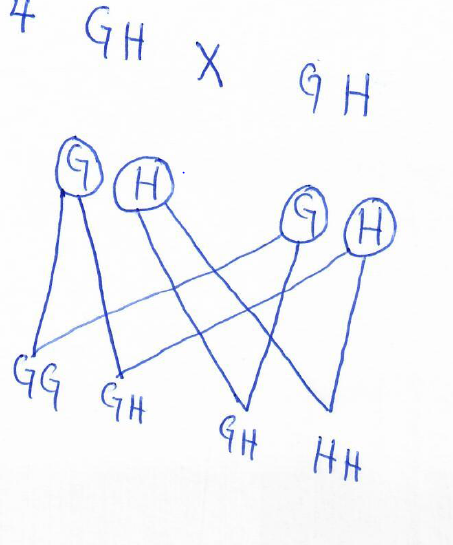 4 GH X GH
G H G H
GG GH GH HH